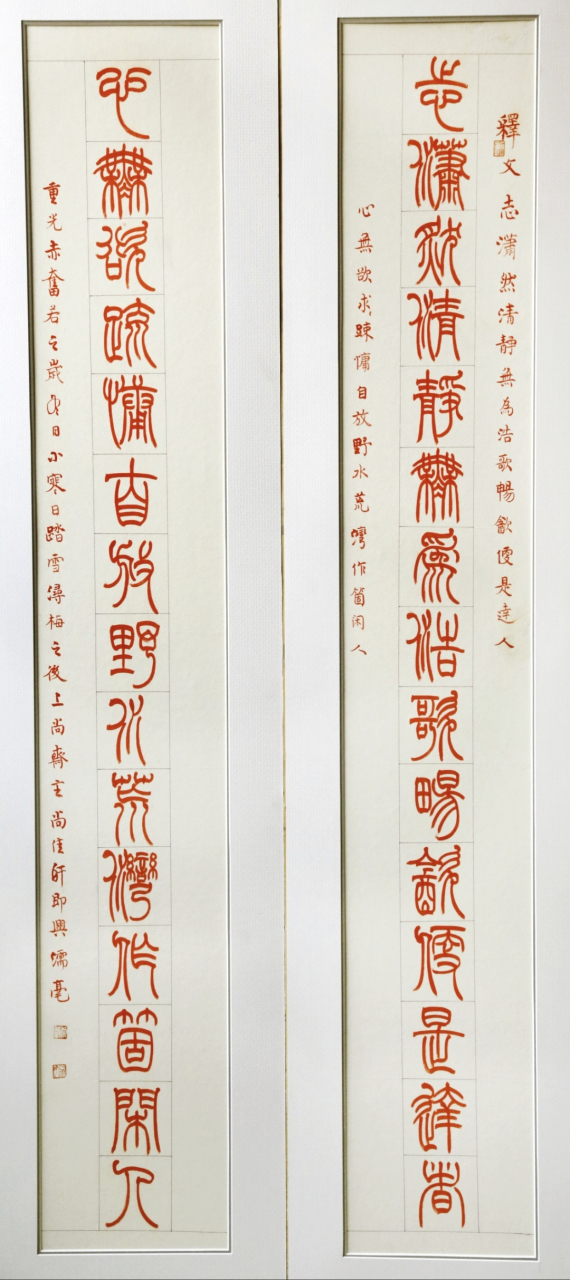 釋文 志瀟然清靜無為浩歌暢㱃便是達人
志瀟然清靜無為浩歌暢㱃便是達者
心無欲求踈慵自放野水荒灣作箇闲人
心無欲踈慵自放野水荒灣作箇閑人
重光赤奮若之歲冬日小寒日踏雪潯梅之後上尚齋主尚佳軒即興濡毫